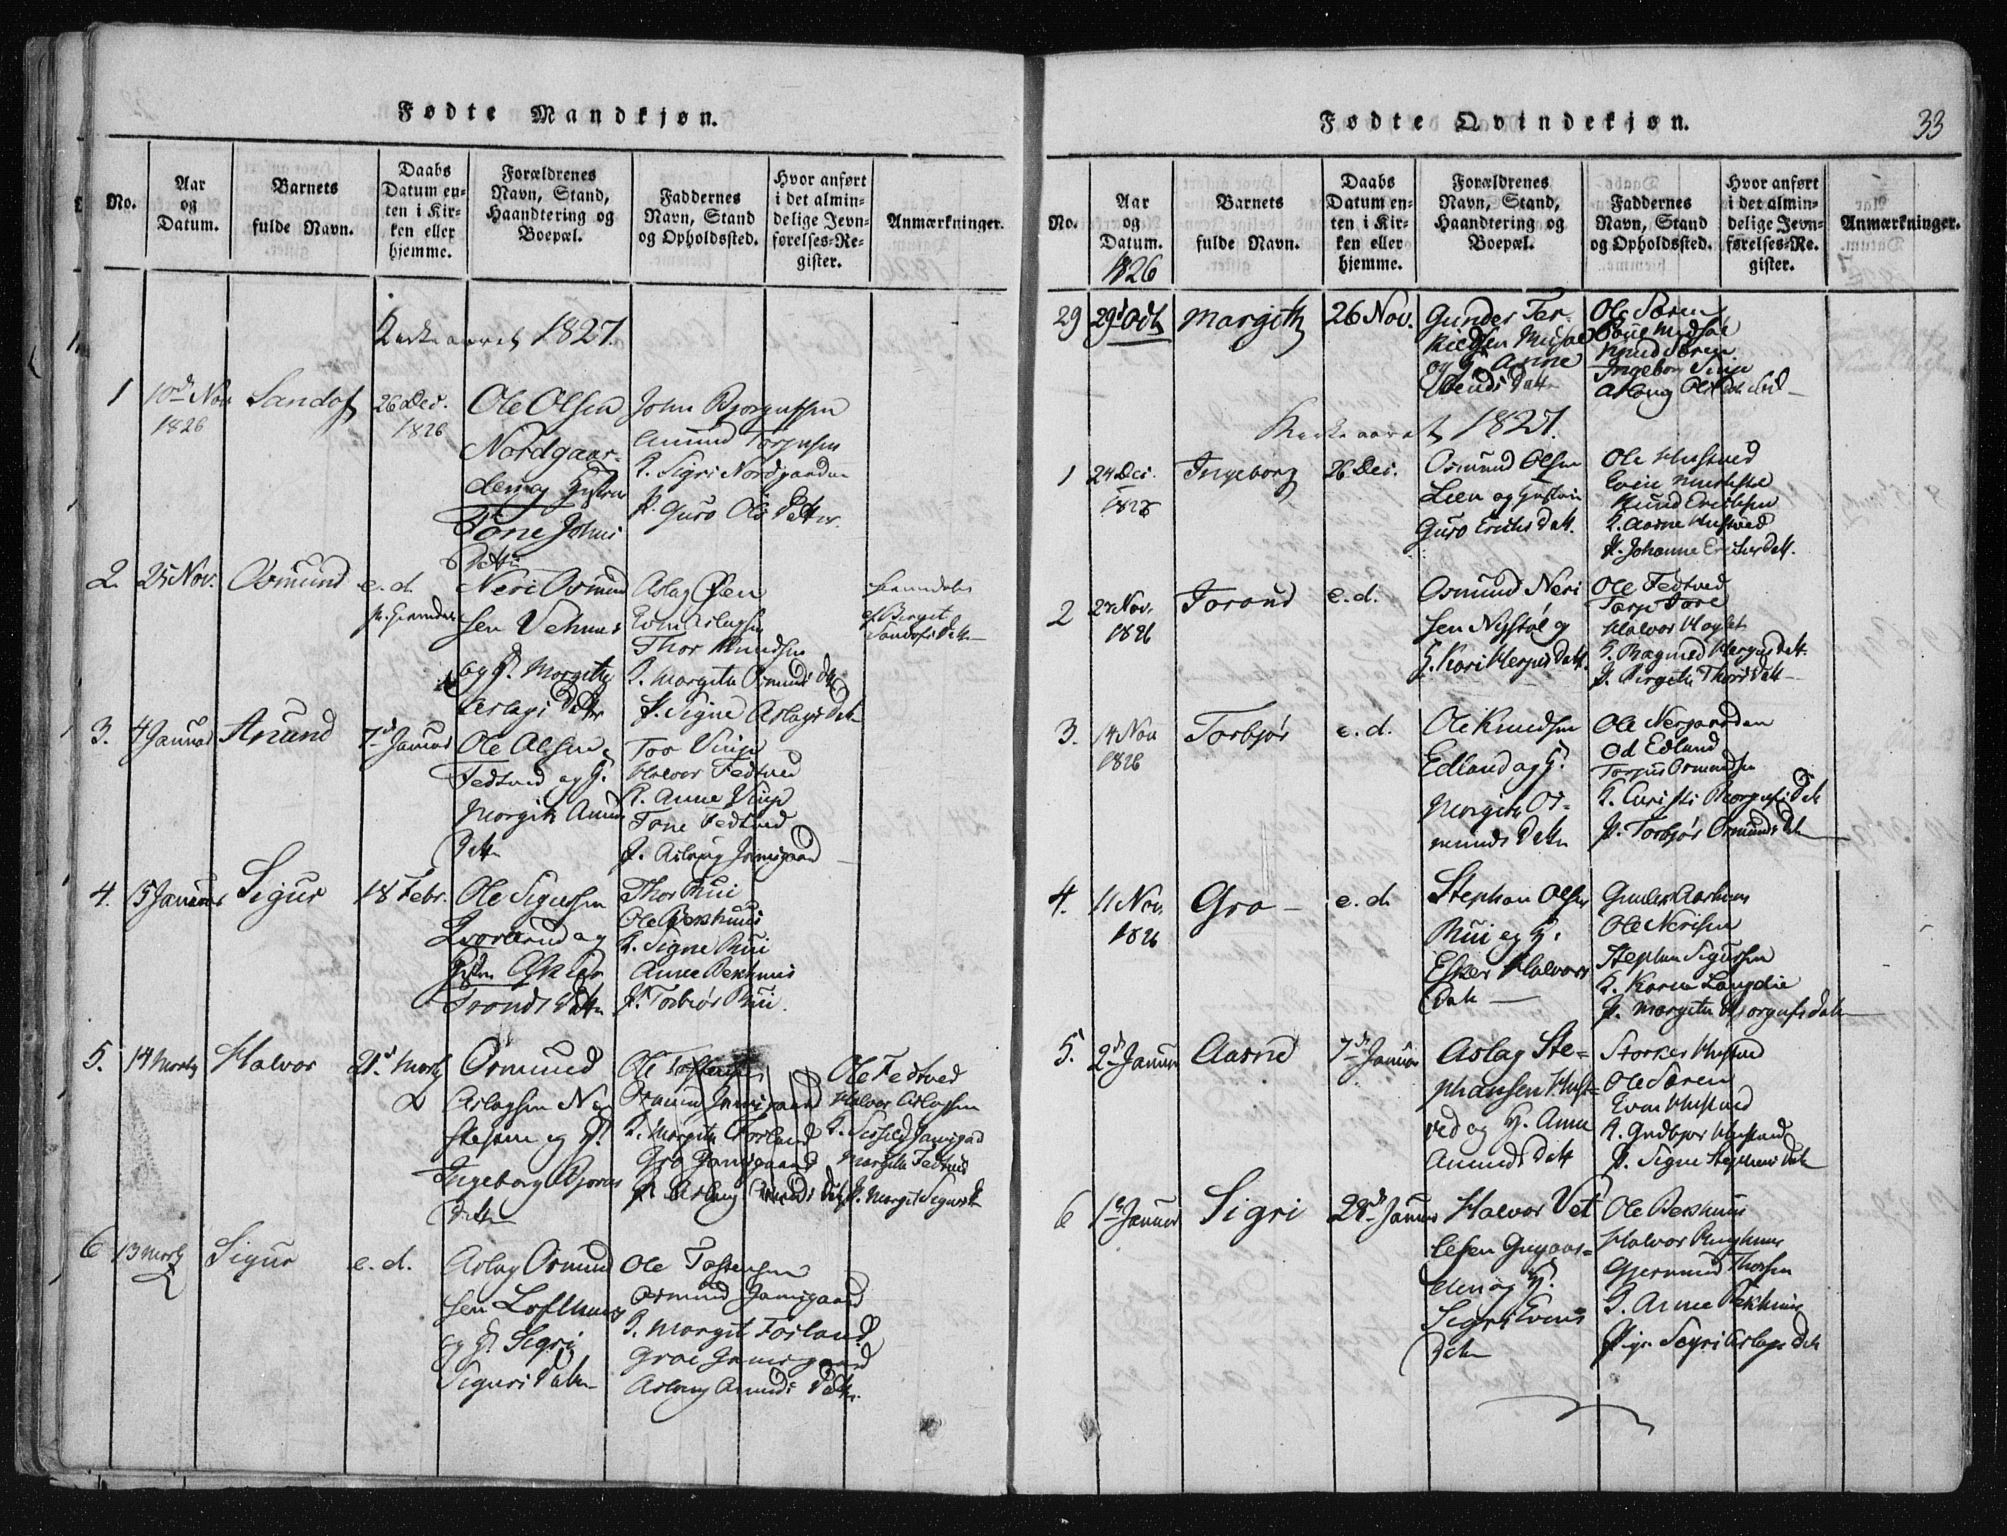 Fødte Mandkjøn.
No.
Aar
og
Datum.
Barnets
fulde Navn.
Daabs
Datum en-
ten i Kir-
ken eller
hjemme.
Forældrenes
Navn, Stand,
Haandtering og
Boepæl.
Faddernes
Navn, Stand
og Opholdssted.
Hvor anført
i det almin-
delige Jevn-
førelses-Re-
gister.
Anmærkninger.
Kirkeaaret 1827.
1
10de Nov
1826
Sandof
26 Dec.
1826
Ole Olsen
Nordgaar-
den og Hustrue
Tone Johns
Datter
John Bjorgufsen
Amund Torjusen
K. Sigri Nordgaarden
P. Guro Ols Datter
2.
25 Nov.
Osmund
e. d.
Neri Osmund
sen Vehuus
og H. Margith
Aslags Datter
Aslag Øien
Even Aslagsen
Thor Knudsen
K. Margith Osmunds Dtr
P. Signe Aslags Datr
hjemdøbt
af Birgit
Sandofs Datter
3.
4 Januar
Anund
7de Januar
Ole Olsen
Fedtved og H.
Margith Anun
Datter
Tor Vinje
Halvor Fedtved
K. Anne Vinje
Tone Fedtved
P. Aslaug Jamsgaard
4.
15 Januar
Sigur
18 Febr.
Ole Sigursen
og
Hustru
Tronds Datter
Thor Bui
Ole Bekhuus
K. Signe Bui
Anne Bekhuus
P. Torbiør Bui.
5.
14 Marts
Halvor
21de Marts
Osmund
Aslagsen Ne
stestue og H.
Ingeborg Bjørns
Datter
Ole Tostensen
Osmund Jamsgaard
K. Margith Forland
Gro Jamsgaard
P. Aslaug Amunds Datr
Ole Fedtved
Halvor Aslagsen
K. Sissel Jamsgaard
Margith Fedtved
P. Margit Sigursdtr
6
13 Marts
Sigur
e. d.
Aslag Osmund
sen Lofthuus
og H. Sigri
Sigurs Datter
Ole Tostensen
Osmund Jamsgaard
K. Margit Forland
Groe Jamsgaard
Aslaug Amunds Datter.
Fødte Qvindekjøn.
33
No.
Aar
og
Datum.
1826
Barnets
fulde Navn.
Daabs
Datum en-
ten i Kir-
ken eller
hjemme.
Forældrenes
Navn, Stand,
Haandtering og
Boepæl.
Faddernes
Navn, Stand
og Opholdssted.
Hvor anført
i det almin-
delige Jevn-
førelses-Re-
gister.
Anmærkninger.
29
29de Octb
Margith
26 Nov.
Gunder Ter-
kildsen
og H. Anne
Datter
Ole Særen
Knud Særen
Ingeborg Vinje
Aslaug Ols Datter
Kirkeaaret 1827.
1
24 Dec.
1826
Ingeborg
26 Dec.
Osmund Olsen
Lien og Hustrue
Guro Erichs Datt.
Ole Hustved
Even
Knud Erichsen
K. Aasne Hustved
P. Johanne Erichs Datt.
2
27 Nov.
1826
Torand
e. d.
Osmund Neri
sen Nystøl og
H. Kari Herjus Datt.
Ole Fedtved
Torjus
Halvor
K. Ragnild Herjus Datt.
P. Birgith Thors Datt
3.
14 Nov
1826
Torbjør
e. d.
Ole Knudsen
Edland og H.
Margith Os-
munds Datter
Ole Nergaarden
Od Edland
Torjus Osmundsen
K. Christi Bjorgufs Datr
P. Torbjør Osmunds Datr
4.
11 Nov
1826
Gro
e. d.
Stephan Olsen
Bui og H.
Halvors
Datr
Gunder Aarhuus
Ole Nerisen
Stephan Sigursen
K. Karen Langelie
P. Margith Bjorgufs Datter
5.
2de Januar
Aasne
7de Januar
Aslag Ste-
phansen Hust-
ved og H. Anne
Amunds Datt
Storker Hustved
Ole Særen
Even Hustved
K. Gudbjør Hustved
P. Signe Stephans Datr
6
1ste Januar
Sigri
28de Januar
Halvor Vet
lesen Gugaar-
den og H.
Sigri Evens
Datter
Ole Bekhuus
Halvor Ringhuus
Gjermund Thorsen
K. Anne Bekhuus
Pige Sigri Aslags Datr